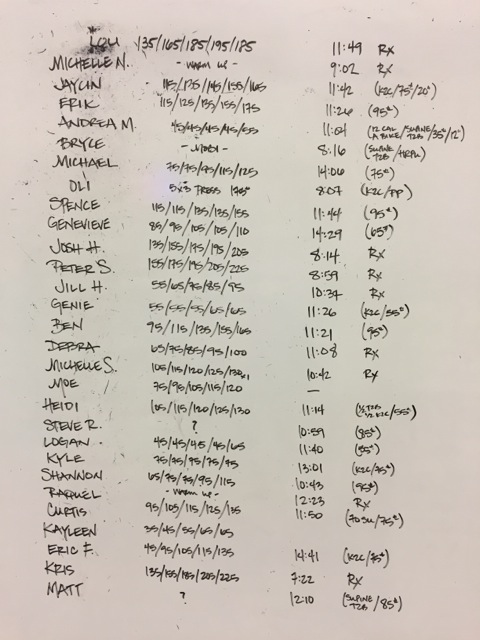 LOU 135/165/185/195/185 11:49 Rx
MICHELLE N. - WARM UP - 9:02 Rx
JAYLIN 115/135/145/155/165 11:42 (K2C/75#/20")
ERIK 115/125/135/155/175 11:26 (95#)
ANDREA M. 45/45/45/45/55 11:01 (12 CAL A BIKE/SUPINE T2B/35#/12")
BRYCE - MODI - 8:16 (SUPINE T2B/HRPU)
MICHAEL 75/75/95/115/125 14:06 (75#)
OLI 5x3 PRESS 175# 8:07 (K2C/PP)
SPENCE 115/115/135/135/155 11:44 (95#)
GENEVIEVE 85/95/105/105/110 14:29 (65#)
JOSH H. 135/155/175/195/205 8:14 Rx
PETER S. 155/175/195/205/225 8:59 Rx
JILL H. 55/65/75/85/95 10:37 Rx
GENIE 55/55/55/65/65 11:26 (K2C/55#)
BEN 95/115/135/155/165 11:21 (95#)
DEBRA 65/75/85/95/100 11:08 Rx
MICHELLE S. 105/115/120/125/130x1 10:42 Rx
MOE 75/95/105/115/120 —
HEIDI 105/115/120/125/130 11:14 (½ T2B ½ K2C/55#)
STEVE R. ? 10:59 (85#)
LOGAN 45/45/45/45/65 11:40 (55#)
KYLE 75/75/95/75/95 13:01 (K2C/75#)
SHANNON 65/75/75/95/115 10:43 (95#)
RAQUEL - WARM UP - 12:23 Rx
CURTIS 95/105/115/125/135 11:50 (70 SU/75#)
KAYLEEN 35/45/55/65/65
ERIC F. 45/95/105/115/135 14:41 (K2C/75#)
KRIS 135/155/185/205/225 7:22 Rx
MATT ? 12:10 (SUPINE T2B/85#)